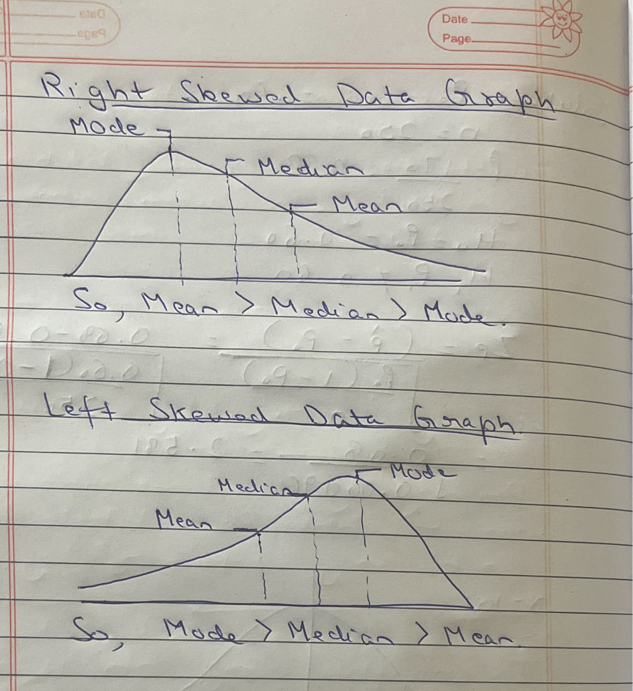 Date
Page
Right Skewed Data Graph
Mode
Median
Mean
So, Mean > Median > Mode.
Left Skewed Data Graph
Mode
Median
Mean
So, Mode > Median > Mean.